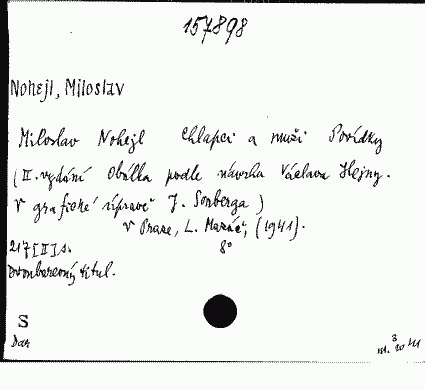 157898
Nohejl, Miloslav
Miloslav Nohejl Chlapci a muži Povídky
(II. vydání Obálka podle návrhu Václava Hejny.
V grafické úpravě J. Sonberga)
V Praze, L. Mazáč, (1941).
217 [II] s. 8°
Dvoubarevný titul.
S
Dar